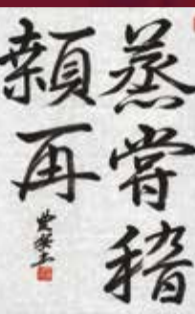 蒸嘗稽
顙再